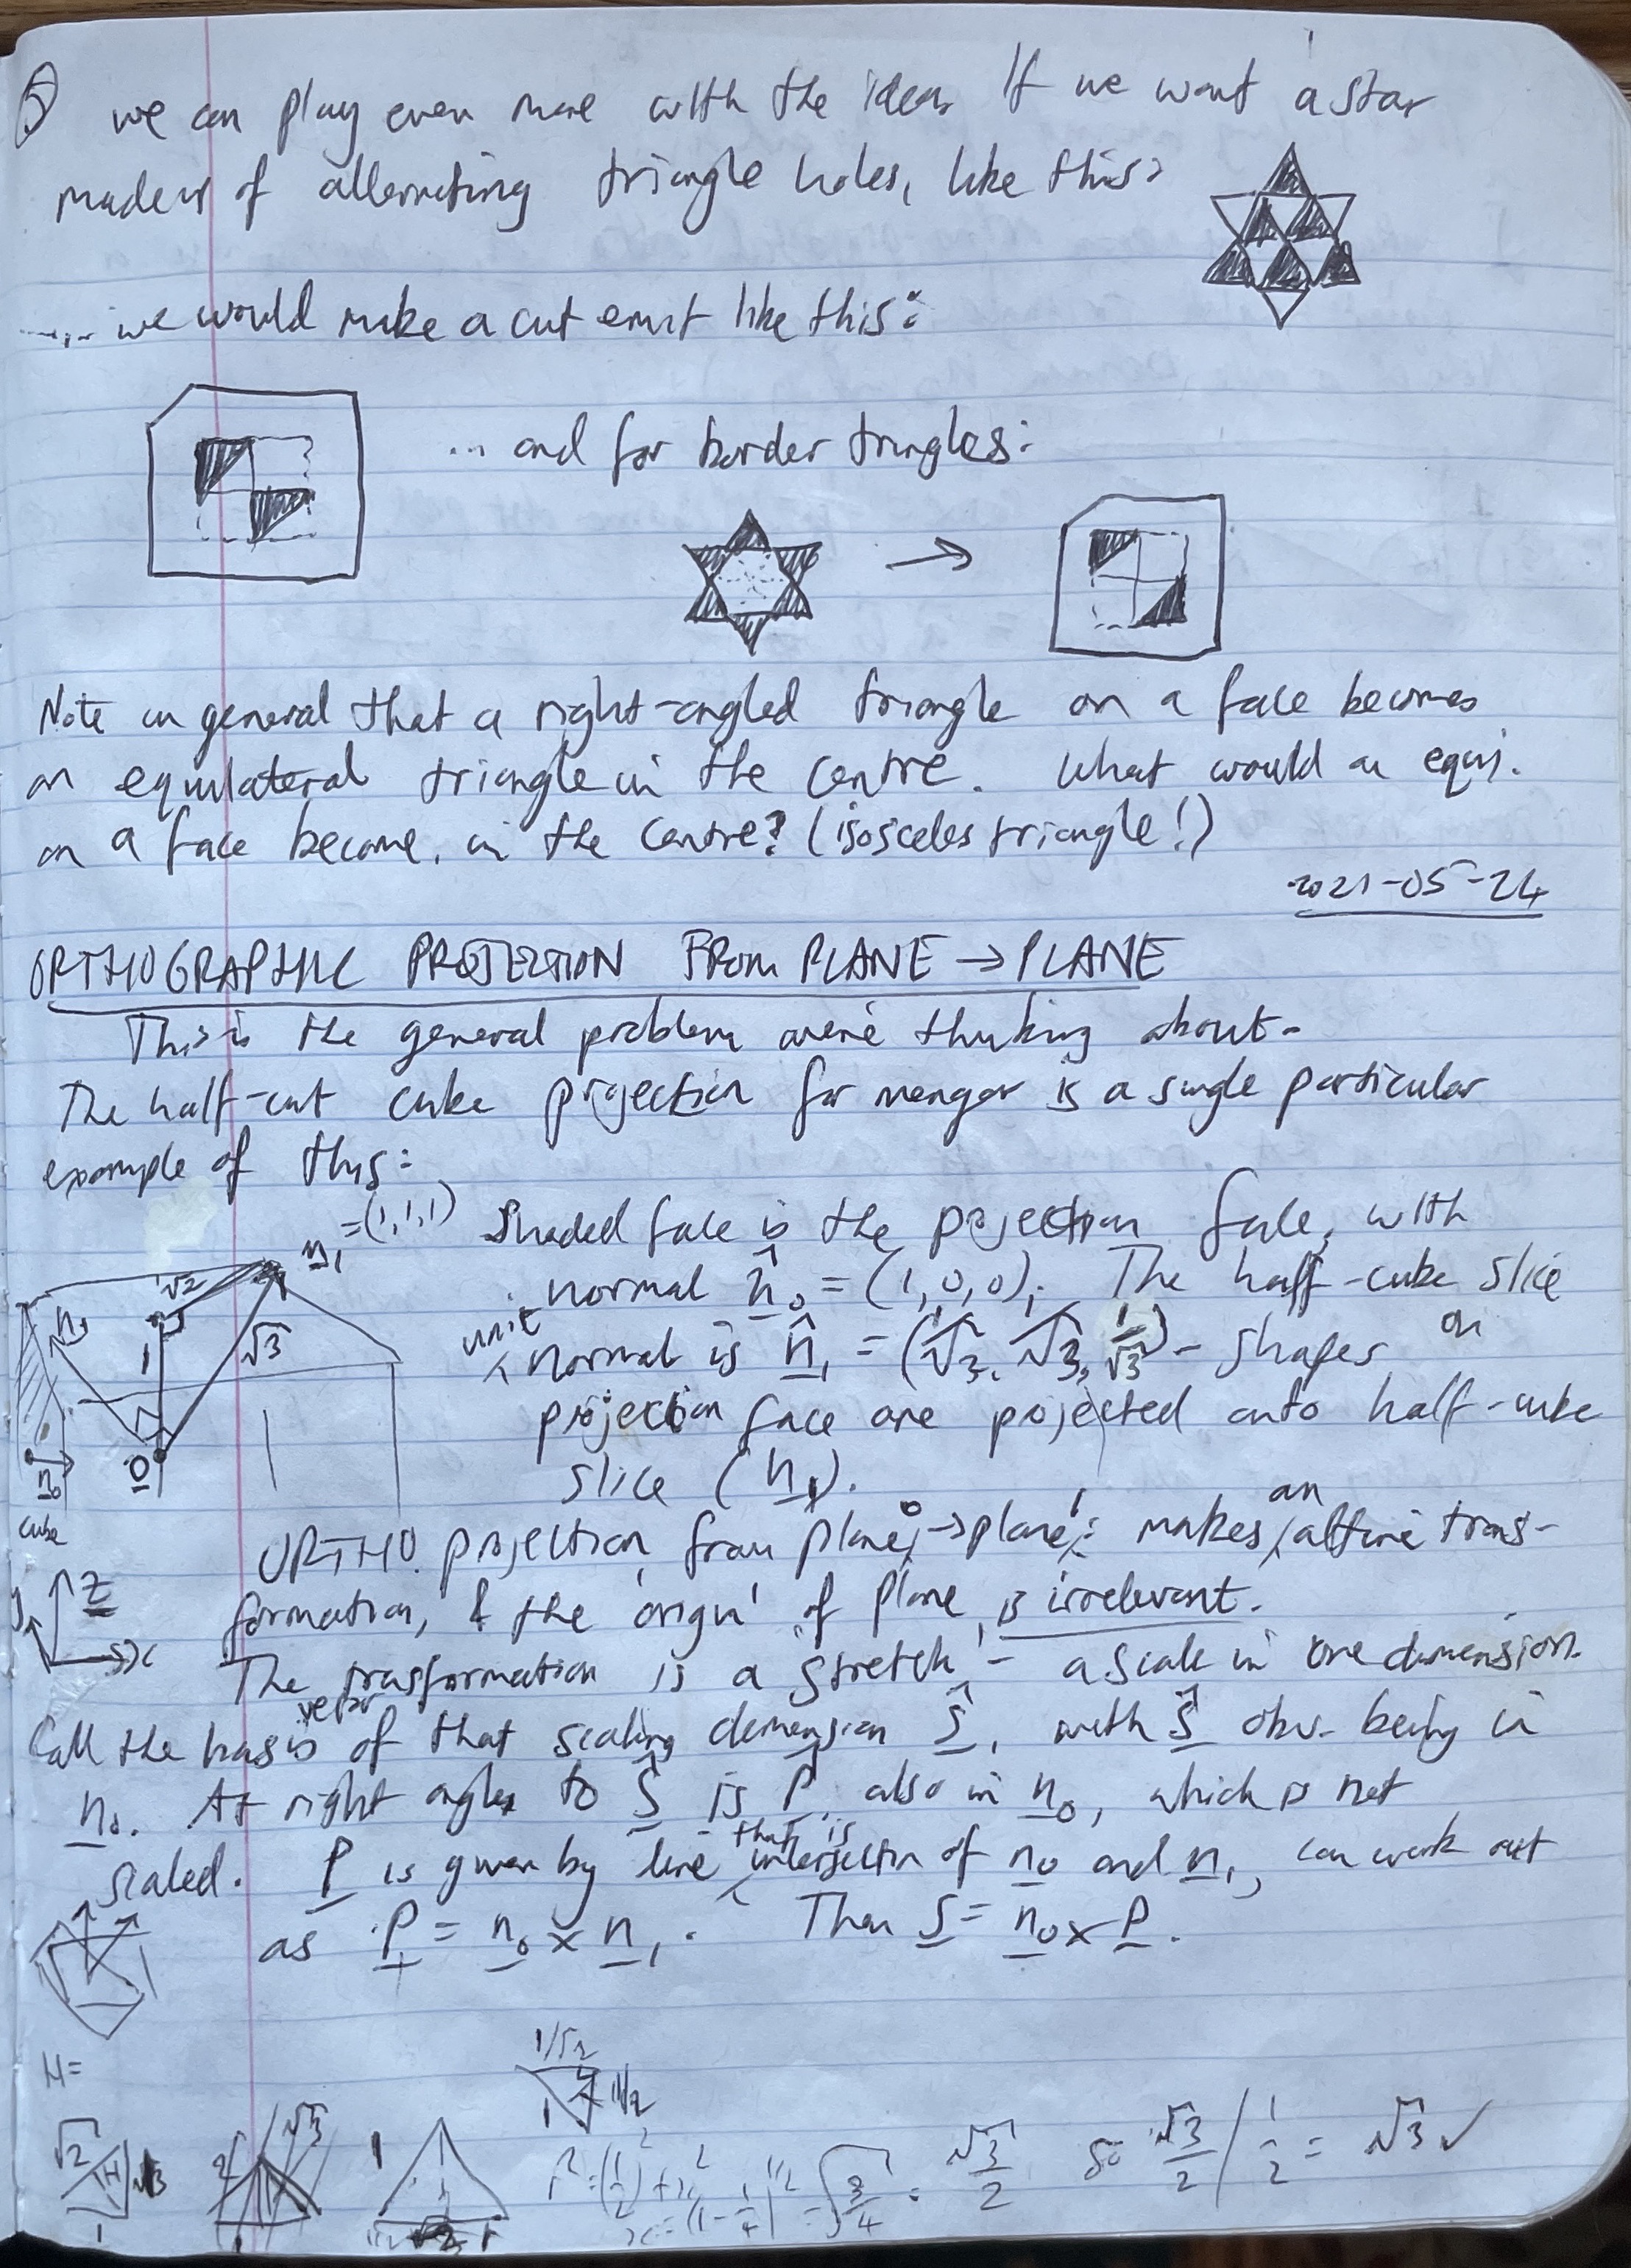 ⑤ we can play even more with the idea. If we want a star
made up of alternating triangle holes, like this:
... we would make a cut-out like this:
... and for border triangles:
→
Note in general that a right-angled triangle on a face becomes
an equilateral triangle in the centre. What would an equi.
on a face become, in the centre? (isosceles triangle!)
2021-05-24
ORTHOGRAPHIC PROJECTION FROM PLANE → PLANE
This is the general problem we're thinking about.
The half-cut cube projection for menger is a single particular
example of this:
n₁ = (1,1,1) Shaded face is the projection face, with
normal n̂₀ = (1,0,0). The half-cube slice
unit normal is n̂₁ = (1/√3, 1/√3, 1/√3) - shapes on
projection face are projected onto half-cube
slice (n₁).
√2
1
√3
n₁
n₀
O
cube
ORTHO. projection, from plane₀ → plane₁: makes an affine trans-
formation, & the 'origin' of plane is irrelevant.
z
y
x
The trasformation is a 'stretch' - a scale in one dimension.
Call the basis vector of that scaling dimension ŝ, with ŝ obv. being in
n₀. At right angles to ŝ is p̂, also in n₀, which is not
scaled. p is given by line that is intersection of n₀ and n₁, can work out
as p = n₀ × n₁. Then s = n₀ × p.
H=
1/√2
1
1/2
√2
H
√3
1
2
√3
1
1
= √3/2 so √3/2 / 1/2 = √3 ✓